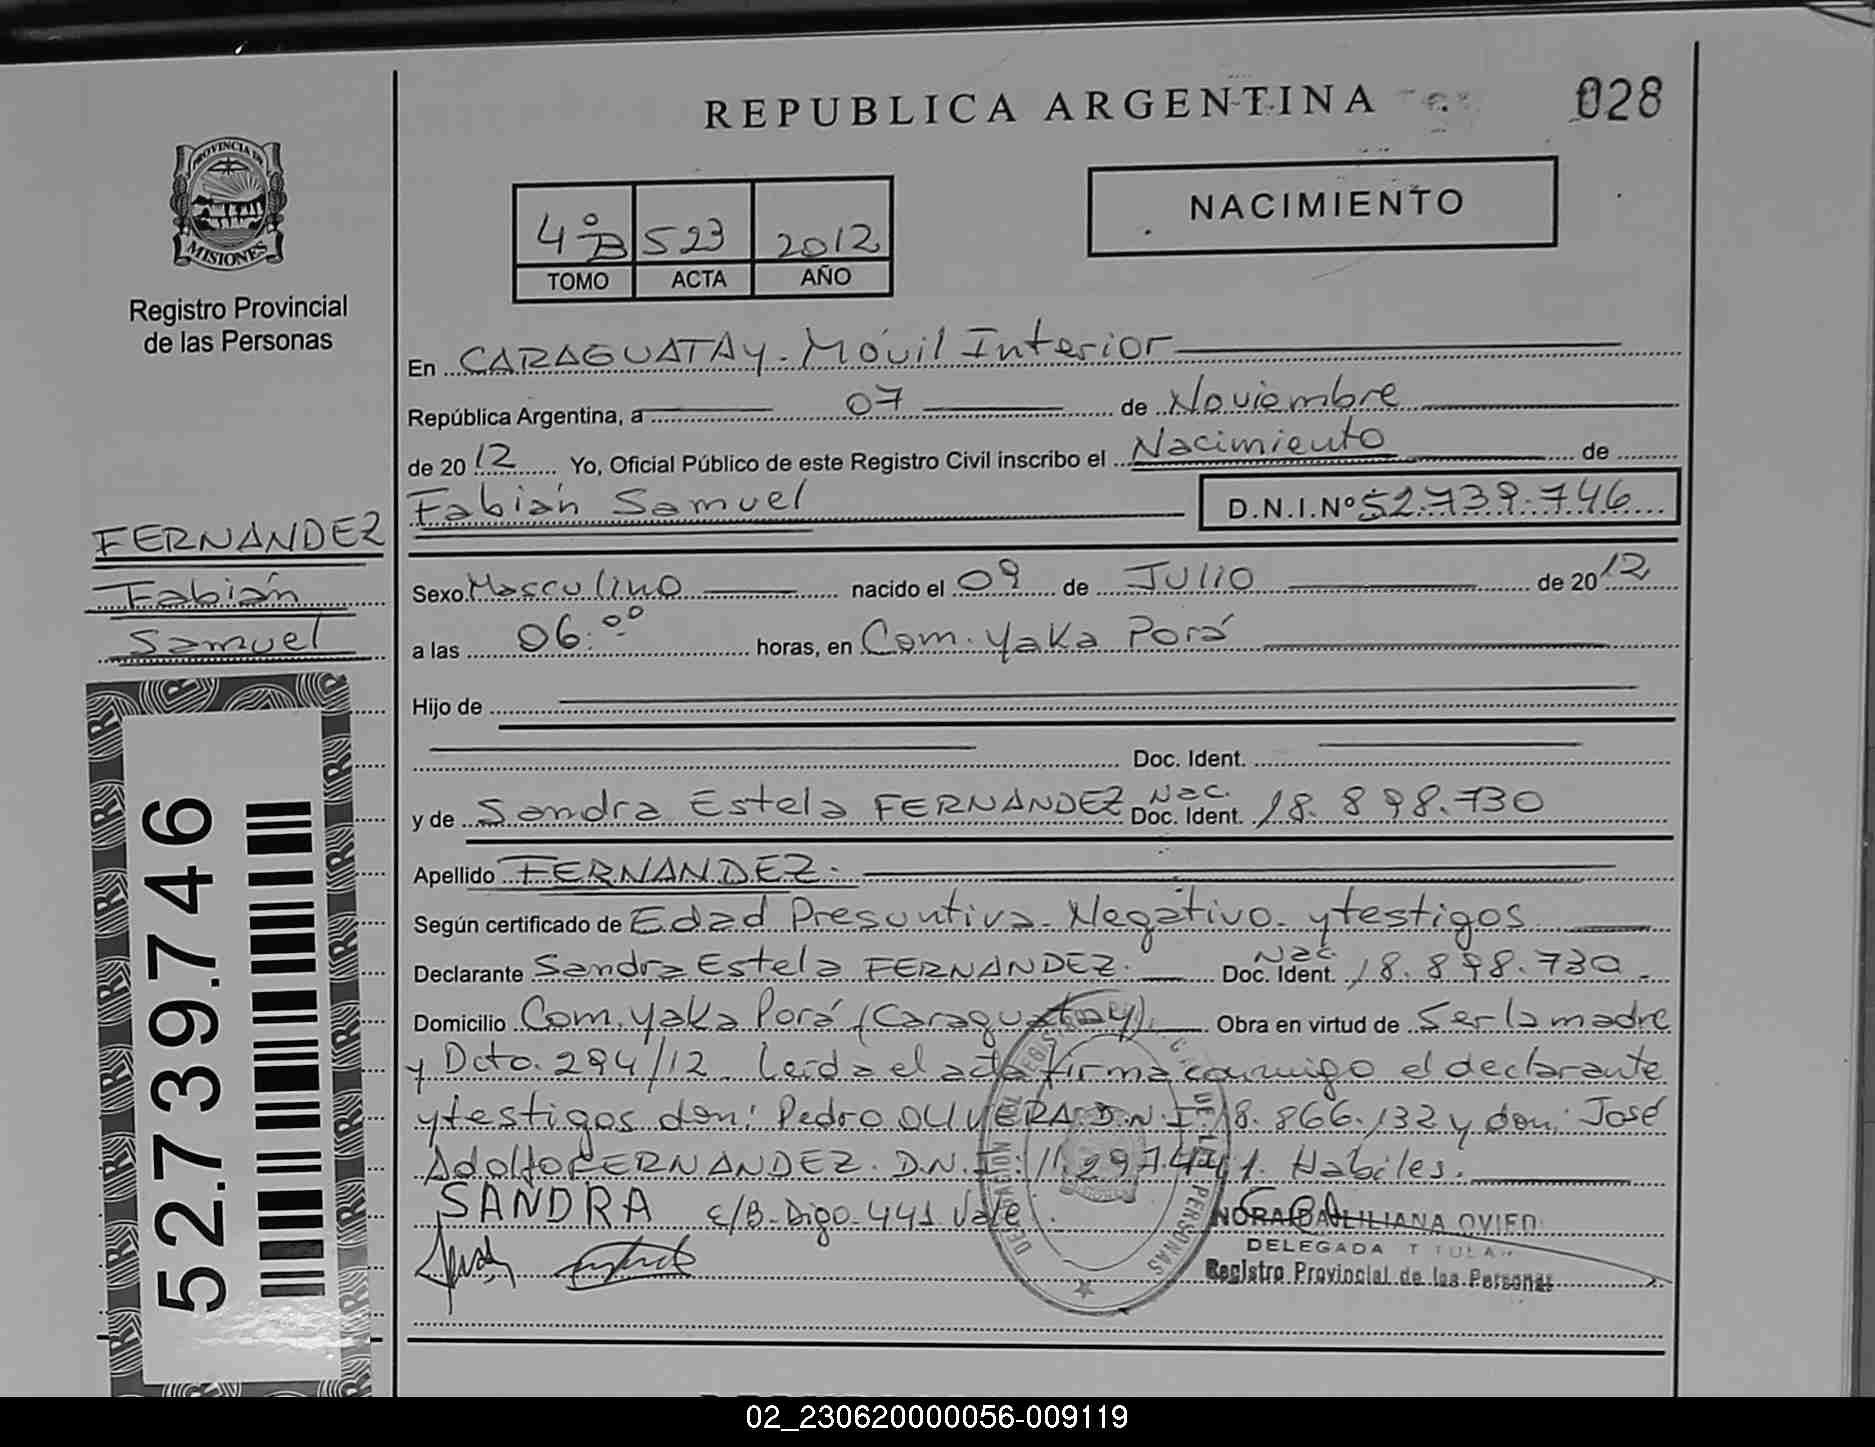 REPUBLICA ARGENTINA
028
PROVINCIA DE
MISIONES
Registro Provincial
de las Personas
4º B 523 2012
TOMO ACTA AÑO
NACIMIENTO
En CARAGUATAY. Móvil Interior
República Argentina, a 07 de Noviembre
de 2012 Yo, Oficial Público de este Registro Civil inscribo el Nacimiento de
Fabián Samuel D.N.I.Nº 52.739.746
FERNANDEZ
Fabián
Samuel
Sexo Masculino nacido el 09 de Julio de 2012
a las 06:ºº horas, en Com. Yaka Porá
Hijo de
Doc. Ident.
y de Sandra Estela FERNANDEZ Nac. Doc. Ident. 18.898.730
Apellido FERNANDEZ.
Según certificado de Edad Presuntiva. Negativo. y testigos
Declarante Sandra Estela FERNANDEZ. Nac. Doc. Ident. 18.898.730.
Domicilio Com. Yaka Porá (Caraguatay). Obra en virtud de Ser la madre
y Dcto. 294/12. Leída el acta firma conmigo el declarante
y testigos don: Pedro OLIVERA D.N.I. 18.866.132 y don: José
Adolfo FERNANDEZ. D.N.I: 11.297.441. Habiles.
SANDRA E/B. Digo. 441 Vale.
NORA LILIANA OVIED
DELEGADA TITULAR
Registro Provincial de las Personas
DE LAS PERSONAS
52.739.746
02_230620000056-009119